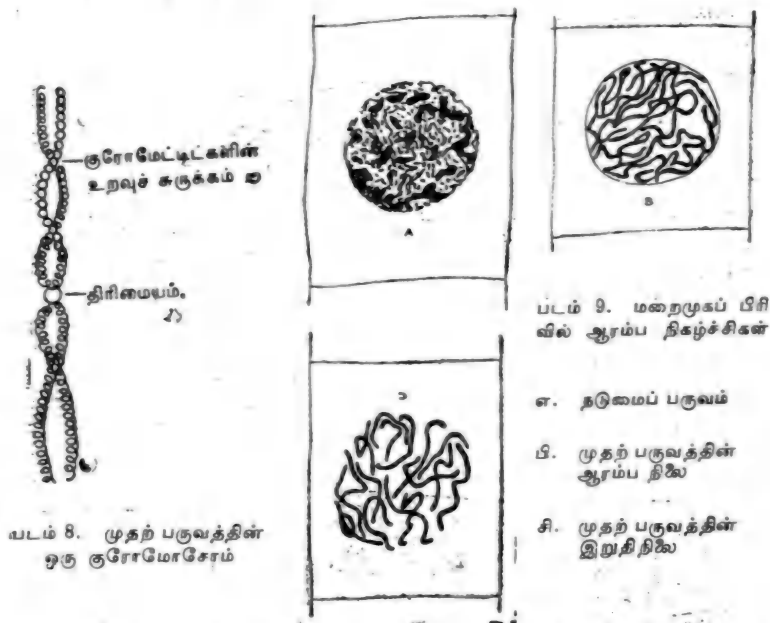 குரோமேட்டிட்களின்
உறவுச் சுருக்கம்
திரிமையம்.
படம் 8. முதற் பருவத்தின்
ஒரு குரோமோசோம்
A
B
படம் 9. மறைமுகப் பிரி
வில் ஆரம்ப நிகழ்ச்சிகள்
எ. நடுமைப் பருவம்
பி. முதற் பருவத்தின்
ஆரம்ப நிலை
சி. முதற் பருவத்தின்
இறுதிநிலை